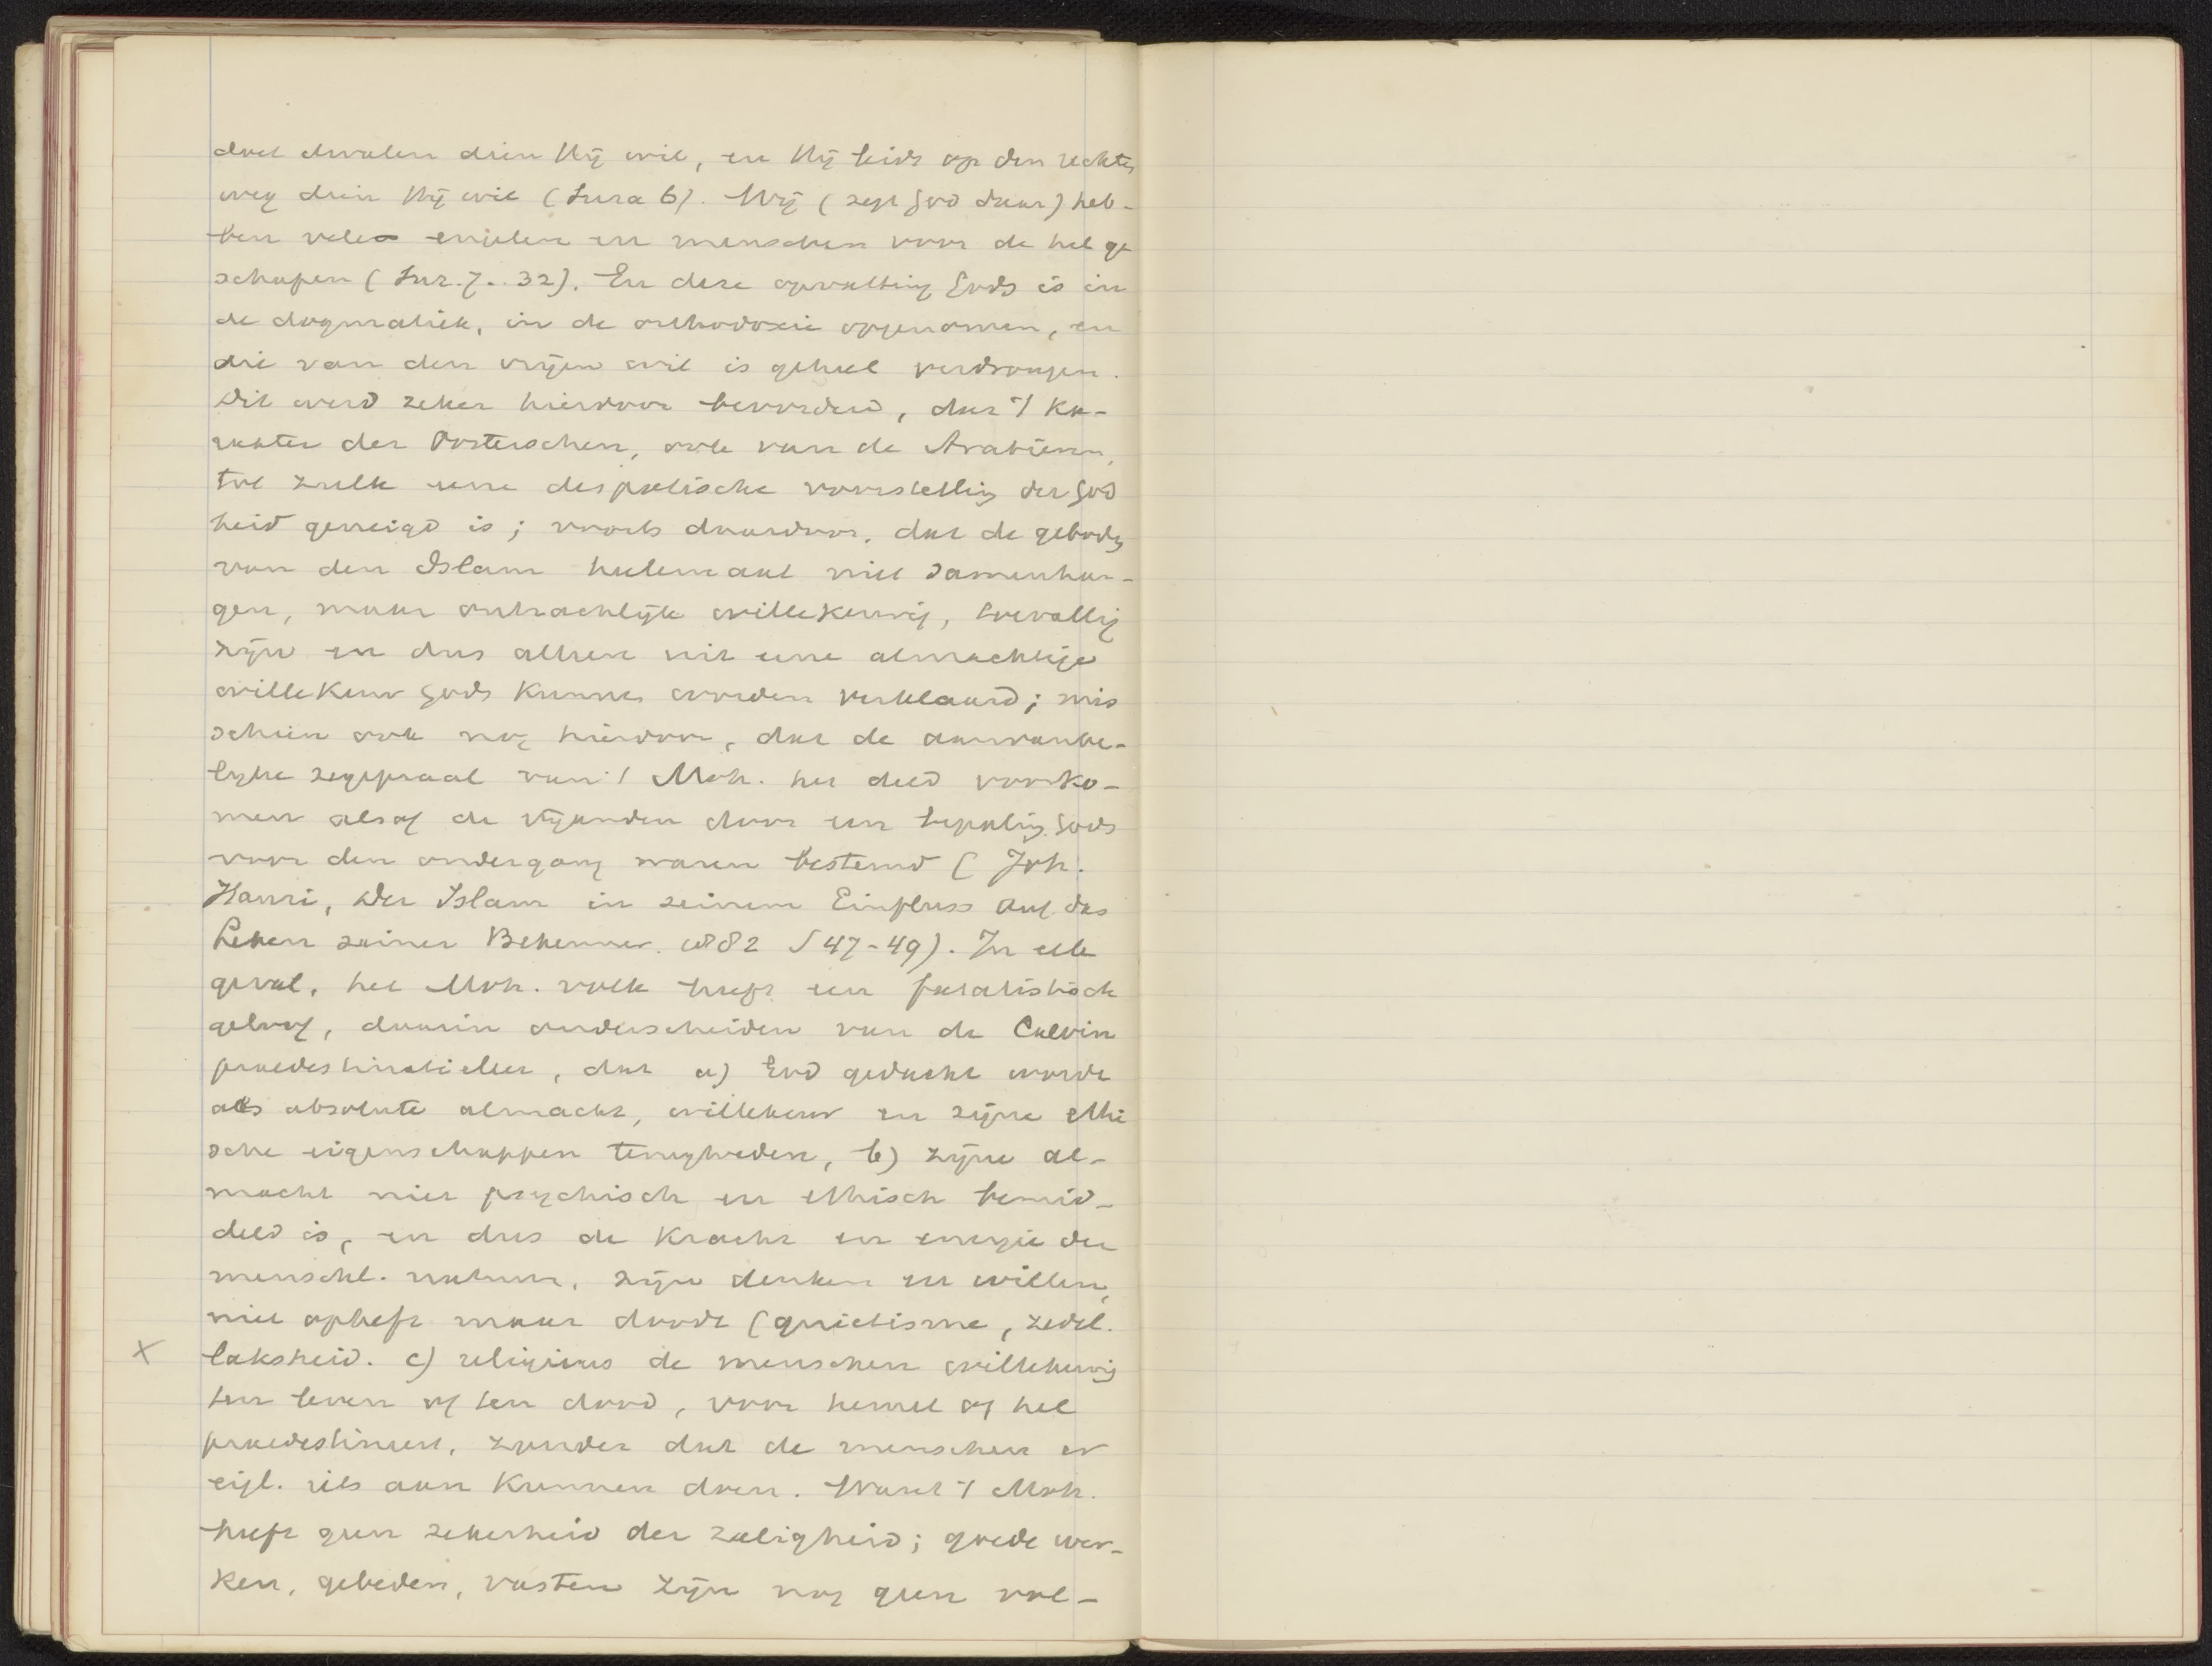 doet dwalen dien Hij wil, en Hij leidt op den rechten
weg dien Hij wil (Sura 6). Wij (zegt God daar) heb-
ben vele engelen en menschen voor de hel ge
schapen (Sur. 7.. 32). En deze opvatting Gods is in
de dogmatiek, in de orthodoxie opgenomen, en
die van den vrijen wil is geheel verdrongen.
Dit werd zeker hierdoor bevorderd, dat 't ka-
rakter der Oosterschen, ook van de Arabieren,
tot zulk eene despotische voorstelling der God
heid geneigd is; voorts daardoor, dat de geboden
van den Islam heelemaal niet samenhan-
gen, maar onzachlijk willekeurig, toevallig
zijn en dus alleen uit eene almachtige
willekeur Gods kunnen worden verklaard; mis
schien ook nog hierdoor, dat de aanvanke-
lijke zegepraal van 't Moh. het deed voorko-
men alsof de vijanden door een bepaling Gods
voor den ondergang waren bestemd (Joh.
Hauri, Der Islam in seinem Einfluss auf das
Leben seiner Bekenner. 1882 S 47-49). In elk
geval, het Moh. volk heeft een fatalistisch
geloof, daarin onderscheiden van de Calvin
praedestinatieleer, dat a) God gedacht wordt
als absolute almacht, willekeur en zijne ethi
sche eigenschappen terugtreden, b) zijne al-
macht niet psychisch en ethisch bemid-
deld is, en dus de kracht en energie der
menschl. natuur, zijn denken en willen,
niet opheft maar doodt (quietisme, zedel.
x laksheid. c) religieus de menschen willekeurig
ten leven of ten dood, voor hemel of hel
praedestineert, zonder dat de menschen er
eigl. iets aan kunnen doen. Want 't Moh.
heeft geen zekerheid der zaligheid; goede wer-
ken, gebeden, vasten zijn nog geen vol-